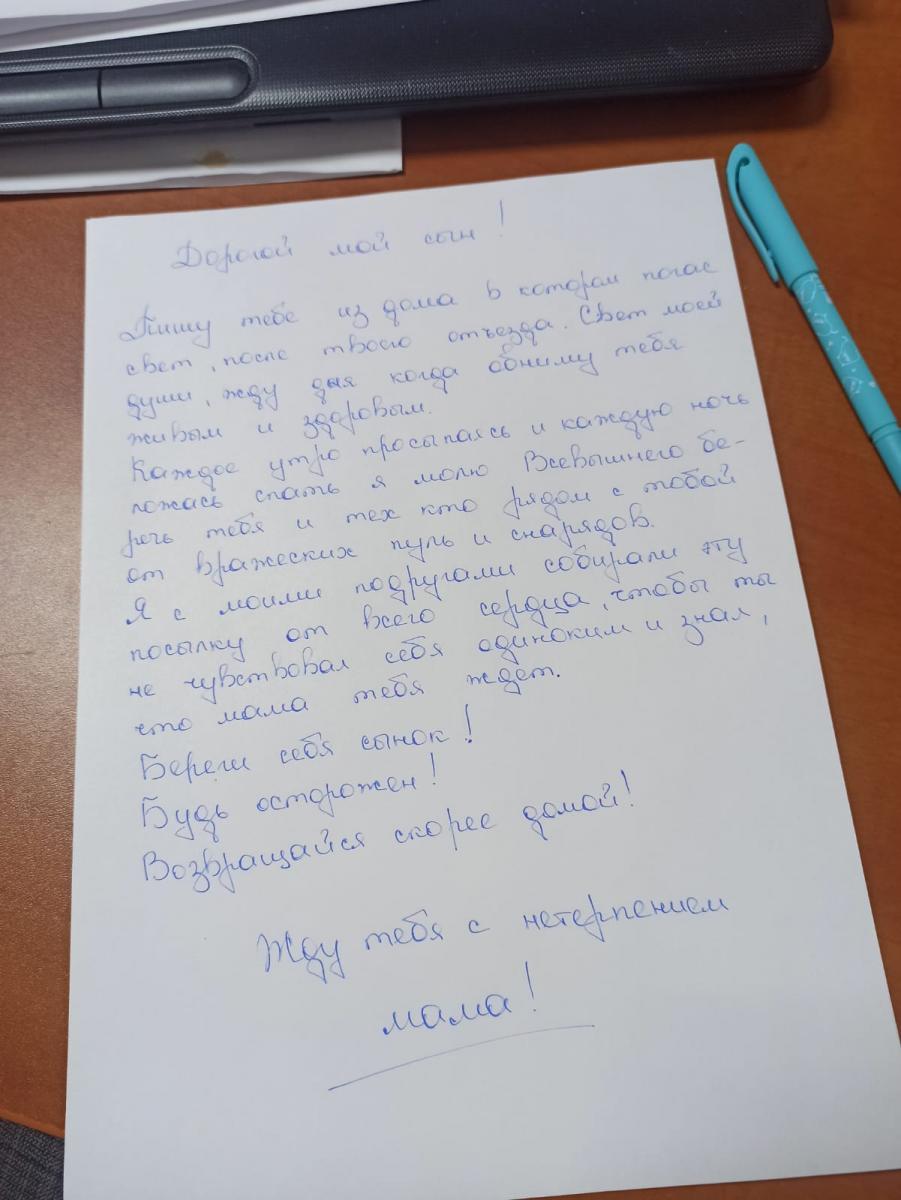 Дорогой мой сын!
Пишу тебе из дома в котором погас
свет, после твоего отъезда. Свет моей
души, жду дня когда обниму тебя
живым и здоровым.
Каждое утро просыпаясь и каждую ночь
ложась спать я молю Всевышнего бе-
речь тебя и тех кто рядом с тобой
от вражеских пуль и снарядов.
Я с моими подругами собирали эту
посылку от всего сердца, чтобы ты
не чувствовал себя одиноким и знал,
что мама тебя ждет.
Береги себя сынок!
Будь осторожен!
Возвращайся скорее домой!
Жду тебя с нетерпением
мама!